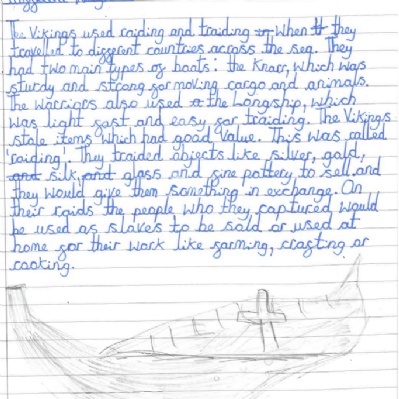 The Vikings used raiding and traiding in when tt they
travelled to different countries across the sea. They
had two main types of boats: the Knarr, which was
sturdy and strong for moving cargo and animals.
The warriors also used a the Longship, which
was light fast and easy for traiding. The Vikings
stole items which had good value. This was called
'raiding'. They traided objects like silver, gold,
and silk, and glass and fine pottery to sell and
they would give them something in exchange. On
their raids the people who they captured would
be used as slaves to be sold or used at
home for their work like farming, crafting or
cooking.